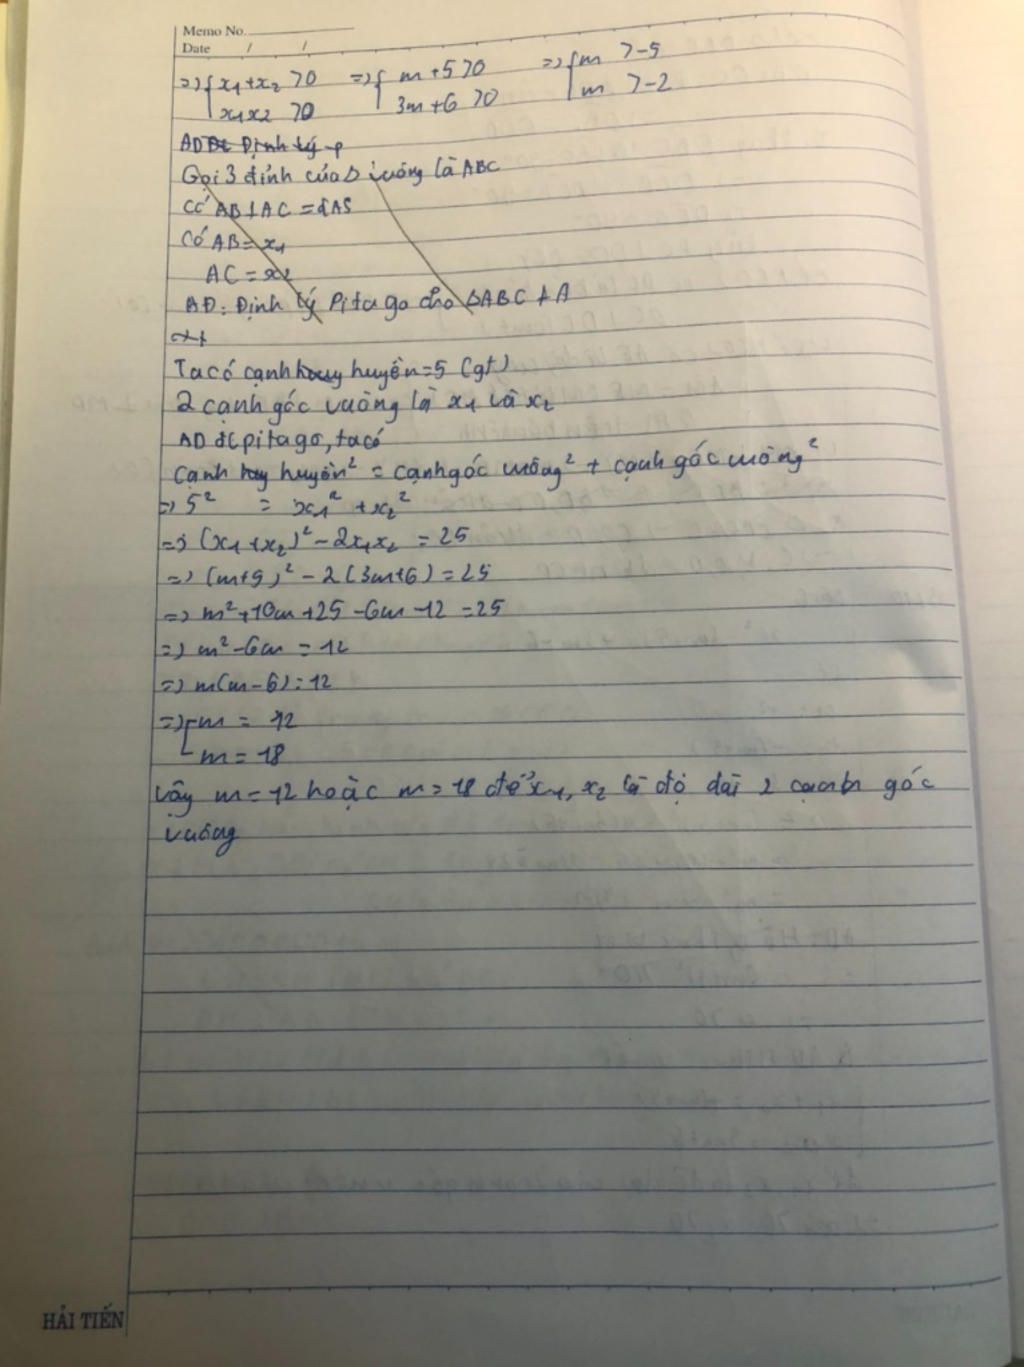 Memo No.
Date / /
=> { x₁+x₂ >0 => { m+5>0 => { m >-5
x₁x₂ >0 3m+6 >0 m >-2
AD Định lý p
Gọi 3 đỉnh của Δ vuông là ABC
Có AB⊥AC = {A}
Có AB = x₁
AC = x₂
AD: Định lý Pitago cho ΔABC ⊥ A
Ta có cạnh huyền=5 (gt)
2 cạnh góc vuông là x₁ và x₂
AD đl pitago, ta có
Cạnh huyền² = cạnh góc vuông² + cạnh góc vuông²
=> 5² = x₁² + x₂²
=> (x₁+x₂)² - 2x₁x₂ = 25
=> (m+5)² - 2(3m+6) = 25
=> m²+10m+25-6m-12 = 25
=> m²-6m = 12
=> m(m-6) = 12
=> [ m = 12
m = 18
Vậy m=12 hoặc m=18 để x₁, x₂ là độ dài 2 cạnh góc
vuông
HẢI TIẾN